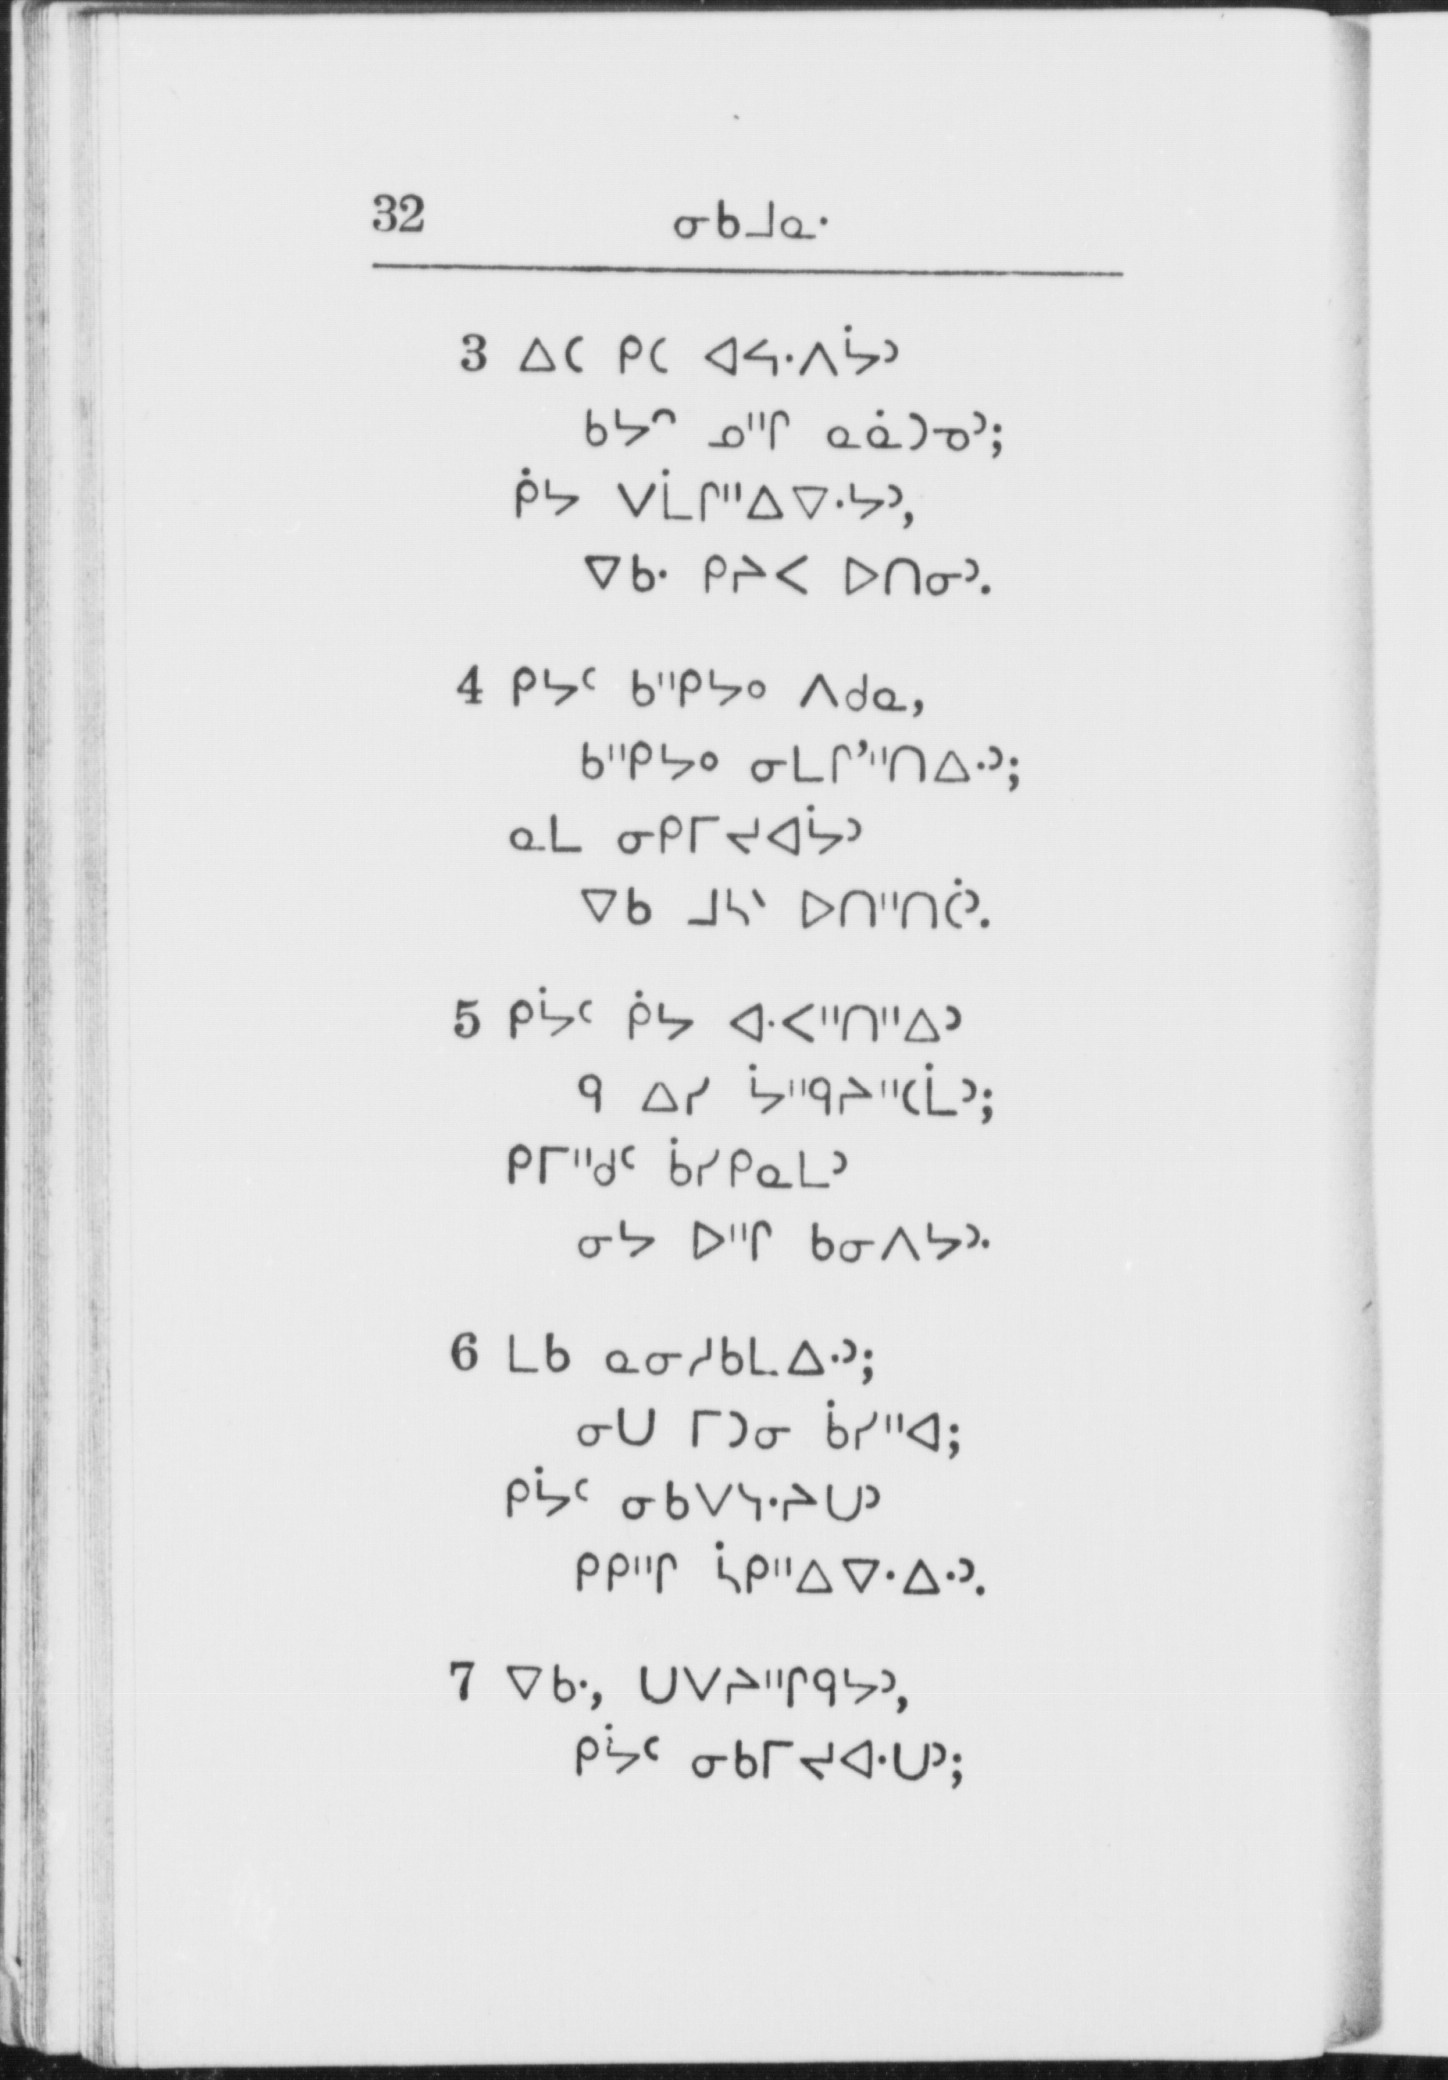 32 ᓂᑲᒧᓇᐧ
3 ᐃᑕ ᑭᑕ ᐊᔦᐧᐱᔮᐣ
ᑲᔭᐢ ᓅᐦᒋ ᓇᓈᑐᓀᐣ;
ᑮᔭ ᐯᒫᒋᐦᐃᐍᔭᐣ,
ᐁᑲᐧ ᑭᔨᐸ ᐅᑎᓂᐣ.
4 ᑭᔭᑦ ᑲᐦᑭᔭᐤ ᐱᑯᓇ,
ᑲᐦᑭᔭᐤ ᓂᒪᒋ’ᐦᑎᐃᐧᐣ;
ᓇᒪ ᓂᑭᒥᔪᐊᔮᐣ
ᐁᑲ ᒧᓴᐠ ᐅᑎᐦᑎᑖᐣ.
5 ᑭᔮᑦ ᑮᔭ ᐊᐧᐸᐦᑎᐦᐃᐣ
ᑫ ᐃᓯ ᔮᐦᑫᔨᐦᑕᒫᐣ;
ᑭᒥᐦᑯᑦ ᑳᓯᑭᓇᒪᐣ
ᓂᔭ ᐅᐦᒋ ᑲᓂᐱᔭᐣ.
6 ᒪᑲ ᓇᓂᓱᑲᒪᐃᐧᐣ;
ᓂᑌ ᒥᑐᓂ ᑳᓯᐦᐊ;
ᑭᔮᑦ ᓂᑲᐯᓭᐧᔨᑌᐣ
ᑭᑭᐦᒋ ᓵᑭᐦᐃᐁᐧᐃᐧᐣ.
7 ᐁᑲᐧ, ᑌᐯᔨᐦᒋᑫᔭᐣ,
ᑭᔮᑦ ᓂᑲᒥᔪᐊᐧᑌᐣ;